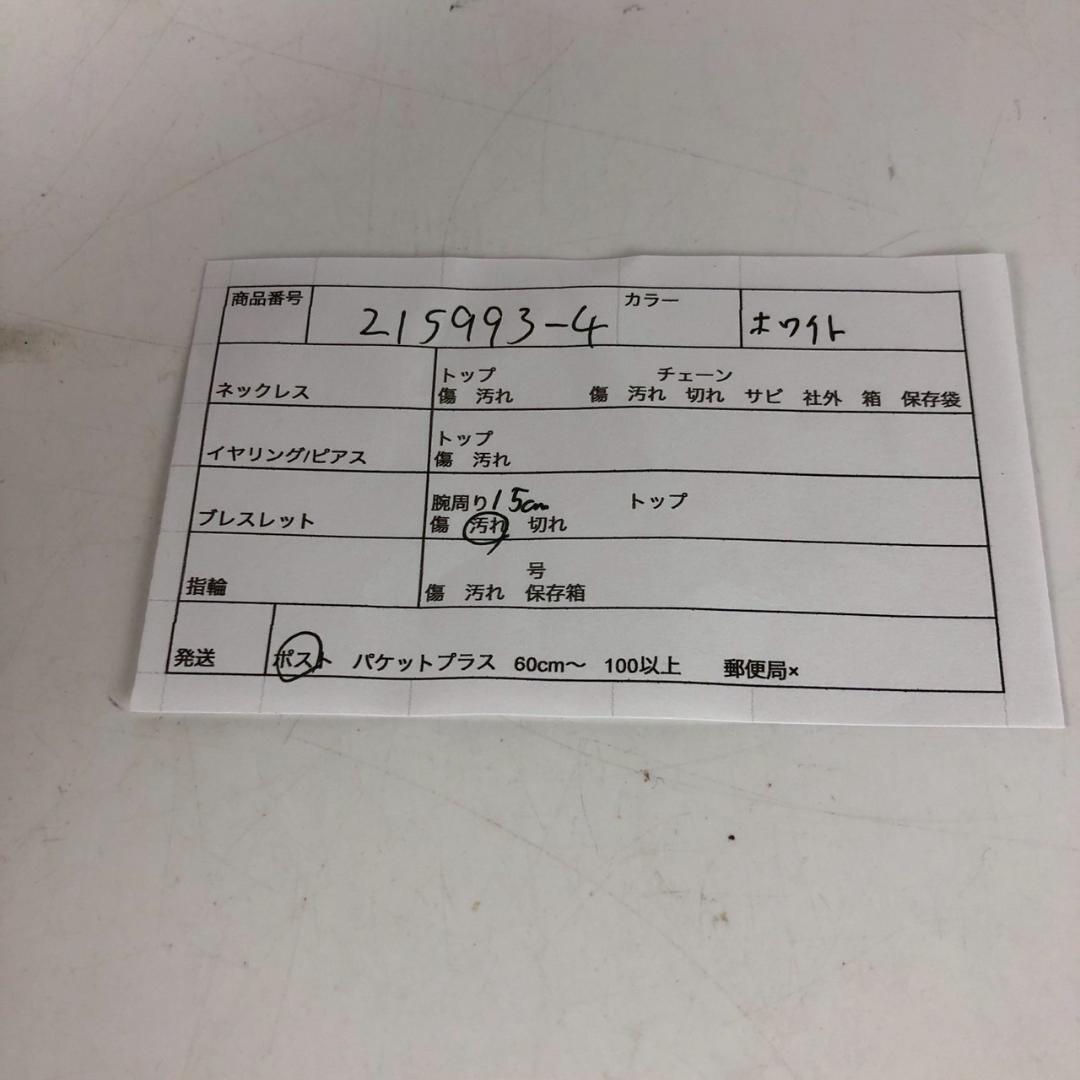 商品番号 215993-4 カラー ホワイト
トップ チェーン
ネックレス 傷 汚れ 傷 汚れ 切れ サビ 社外 箱 保存袋
トップ
イヤリング/ピアス 傷 汚れ
腕周り15cm トップ
ブレスレット 傷 汚れ 切れ
号
指輪 傷 汚れ 保存箱
発送 ポスト パケットプラス 60cm〜 100以上 郵便局×